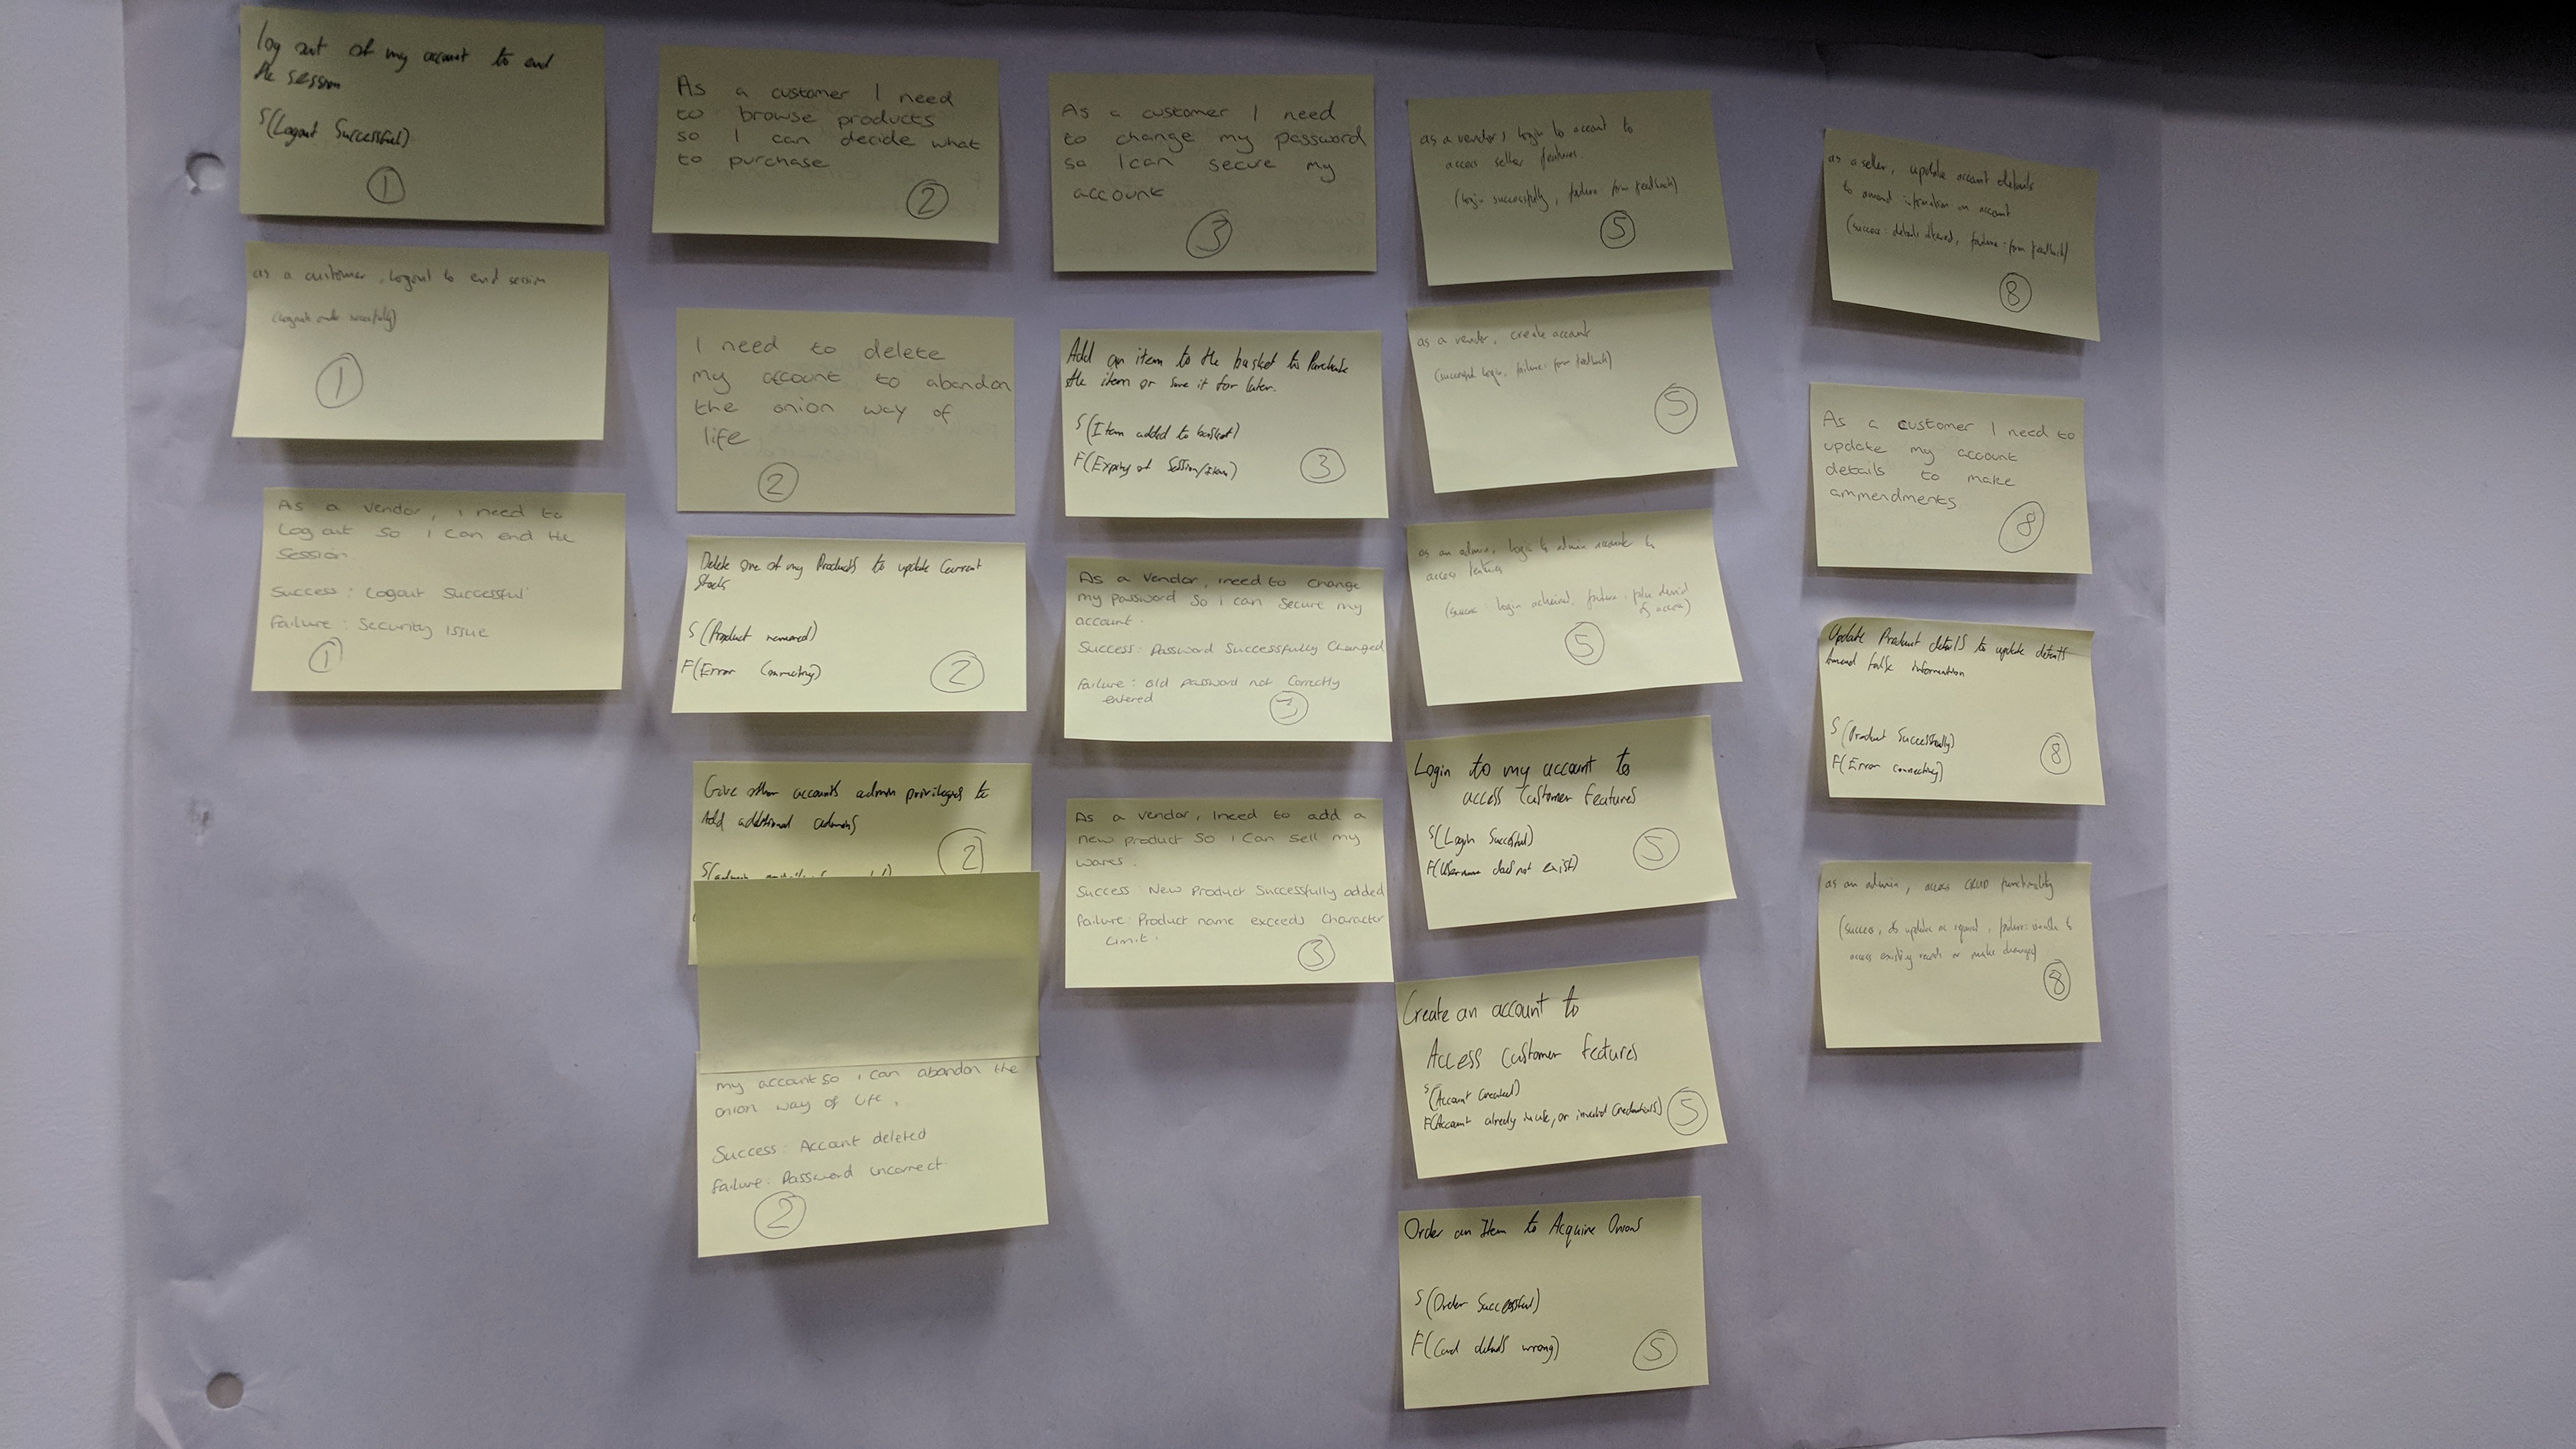 log out of my account to end
the session
S(Logout Successful)
1
as a customer, logout to end session
1
As a vendor, i need to
Log out so i can end the
Session.
Success: Logout Successful
Failure: Security issue
1
As a customer I need
to browse products
so I can decide what
to purchase
2
I need to delete
my account to abandon
the onion way of
life
2
Delete one of my Products to update Current
Stocks
S (Product removed)
F(Error Connecting)
2
Give other accounts admin privileges to
Add additional admins
2
my account so i can abandon the
onion way of life.
Success: Account deleted
Failure: Password incorrect.
2
As a customer I need
to change my password
so I can secure my
account
3
Add an item to the basket to Purchase
the item or save it for later.
S(Item added to basket)
F(Expiry of Session/Item)
3
As a vendor, i need to change
my password so i can secure my
account.
Success: Password Successfully Changed
Failure: old password not Correctly
entered
3
As a vendor, I need to add a
new product so i Can sell my
wares.
Success: New Product Successfully added
Failure: Product name exceeds Character
Limit.
3
as a vendor, login to account to
access seller features
(login successfully, failure form feedback)
5
as a vendor, create account
(successful login, failure: form feedback)
5
as an admin, login to admin account to
access features
(success: login achieved, failure: denial
of access)
5
Login to my account to
access Customer features
S(Login Successful)
F(Username does not exist)
5
Create an account to
Access Customer features
S(Account Created)
F(Account already in use, or invalid Credentials)
5
Order an Item to Acquire Onions
S(Order Successful)
F(Card details wrong)
5
as a seller, update account details
to amend information on account
(success: details altered, failure: form feedback)
8
As a customer I need to
update my account
details to make
ammendments
8
Update Product details to update details
Amend false information
S(Product Successfully)
F(Error connecting)
8
as an admin, access CRUD functionality
(success, db updates as required, failure: unable to
access existing records or make changes)
8